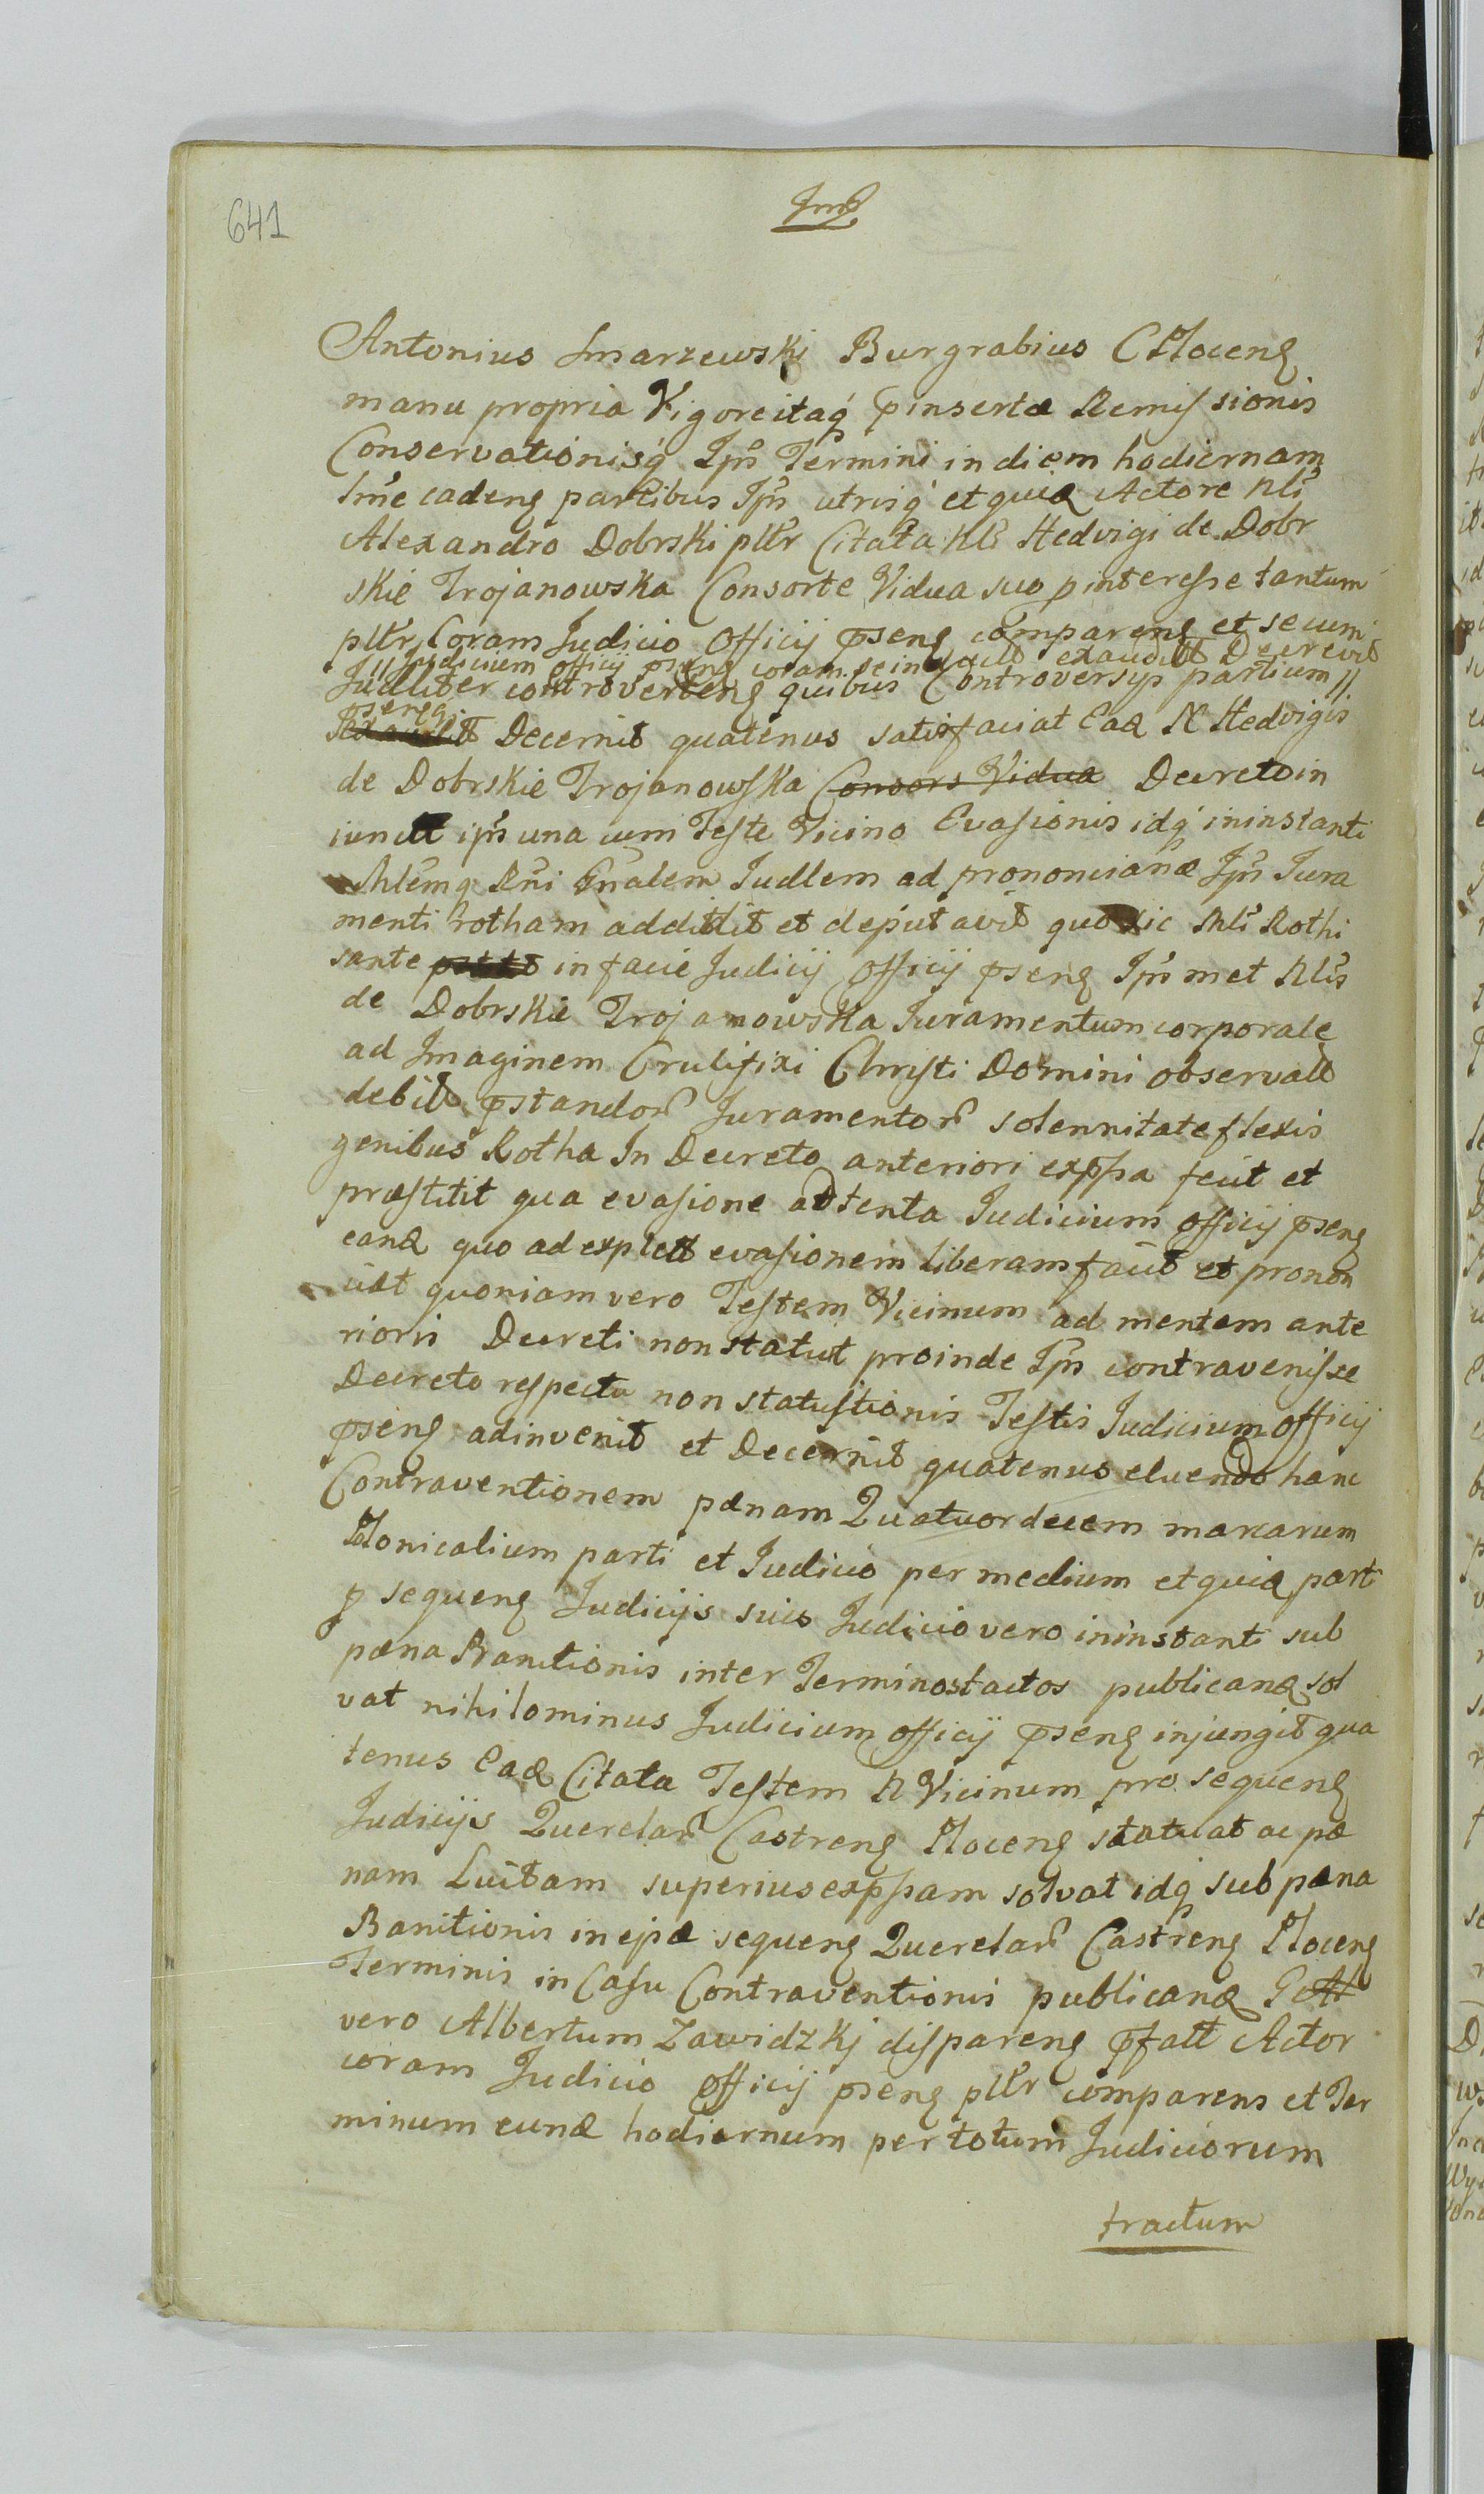 641
Antonius Smarzewski Burgrabius C Ploceng
manu propria Vigore itaq́ p̄insertæ Remissionis
Conservationisq́ Ip̄s Termini in diem hodiernam
cadeng partibus Ip̄s utrisq́ et quid Actore Nli
Alexandro Dobrski pltr Citata Nli Hedvigi de Dobr
skie Trojanowska Consorte Vidua suo p interesse tantum
pltr Coram Judicio Officij p̄seng compareng et secum
// Judicium officij p̄seng coram se inducta exaudita Decrevit
Judliter controverteng quibus Controversys partium //
p̄seng
Decernit quatenus satisfaciat Ead N Hedvigis
de Dobrskie Trojanowska Consors Vidua Decreto in
iunctt ip̄s una cum Teste Vicino Evasionis idq́ in instanti
Judlem ad pronuncianđ Ip̄s Jura
menti rotham addidit et deputavit quo sic Nli Rothi
sante in facie Judicij Officij p̄seng Ip̄s met Nlis
de Dobrskie Trojanowska Juramentum corporale
ad Imaginem Crucifixi Christi Domini observatt
debitt p̄standor Juramentor solennitate flexis
genibus Rotha In Decreto anteriori exp̄ssa fecit et
præstitit qua evasione adtenta Judicium officij p̄seng
eand quo ad explett evasionem liberam facit et pronon
ciat quoniam vero Testem Vicinum ad mentem ante
rioris Decreti non statuit proinde Ip̄s contravenisse
Decreto respectu non statuitionis Testis Judicium officij
p̄seng adinvenit et Decernit quatenus eluendo hanc
Contraventionem pænam Quatuordecem marcarum
Plonicalium parti et Judicio per medium et quid parti
p sequeng Judicijs suis Judicio vero in instanti sub
pæna Banitionis inter Terminos tactos publicand sol
vat nihilominus Judicium officij p̄seng injungit qua
tenus Ead Citata Testem N Vicinum pro sequeng
Judicijs Querelar Castreng Ploceng statuat ac pæ
nam Luitam superius exp̄ssam solvat idq́ sub pæna
Banitionis in ejsd sequeng Querelar Castreng Ploceng
Terminis in Casu Contraventionis publicand
vero Albertum Zawidzkj dispareng p̄fatt Actor
coram Judicio officij p̄seng pltr comparens et Ter
minum eund hodiernum per totum Judiciorum
tractum